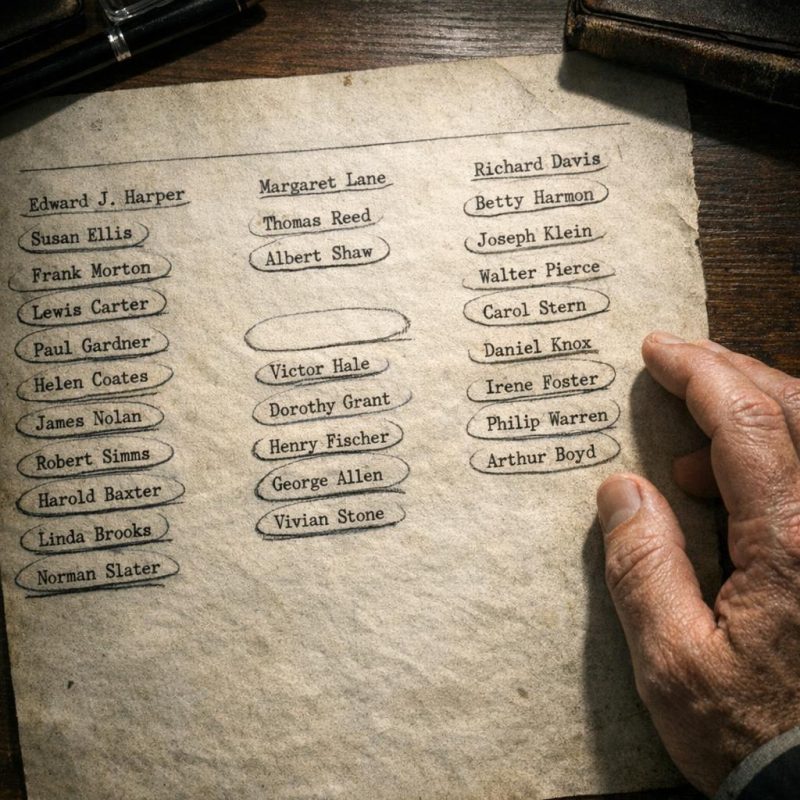 Edward J. Harper
Susan Ellis
Frank Morton
Lewis Carter
Paul Gardner
Helen Coates
James Nolan
Robert Simms
Harold Baxter
Linda Brooks
Norman Slater
Margaret Lane
Thomas Reed
Albert Shaw
Victor Hale
Dorothy Grant
Henry Fischer
George Allen
Vivian Stone
Richard Davis
Betty Harmon
Joseph Klein
Walter Pierce
Carol Stern
Daniel Knox
Irene Foster
Philip Warren
Arthur Boyd